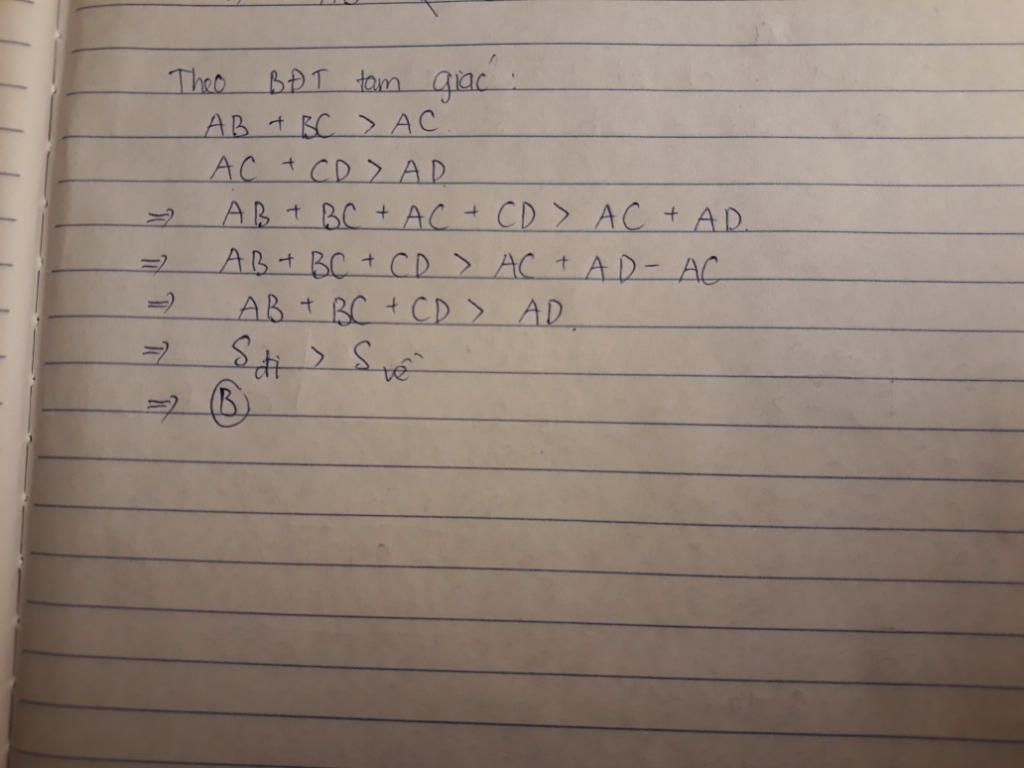 Theo BĐT tam giác :
AB + BC > AC
AC + CD > AD
=> AB + BC + AC + CD > AC + AD.
=> AB + BC + CD > AC + AD - AC
=> AB + BC + CD > AD.
=> S đi > S về
=> B